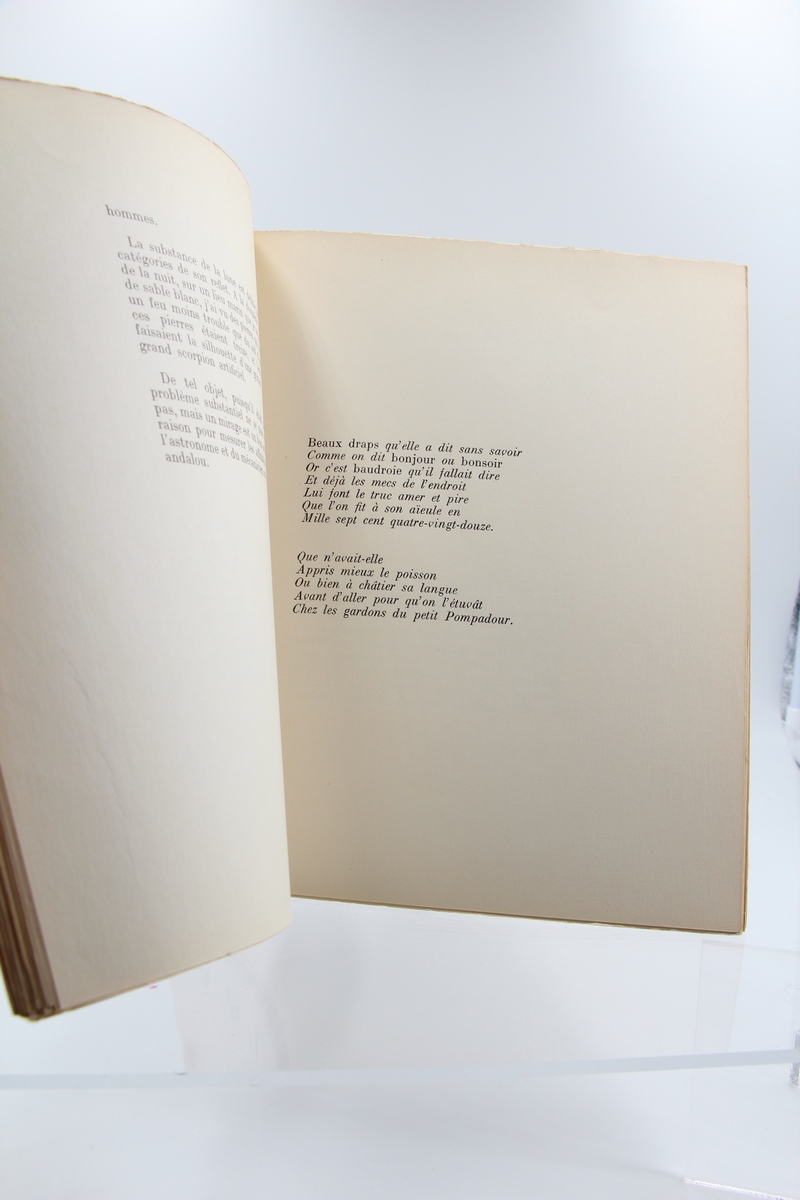 hommes.
La substance de la lune est
catégories de son reflet. A la
de la nuit, sur un
de sable blanc, j'ai vu des
un feu moins trouble que
ces pierres étaient
faisaient la silhouette d'un
grand scorpion artificiel.
De tel objet, puisqu'il
problème substantiel ne se
pas, mais un mirage est
raison pour mesurer
l'astronome et du
andalou.
Beaux draps qu'elle a dit sans savoir
Comme on dit bonjour ou bonsoir
Or c'est baudroie qu'il fallait dire
Et déjà les mecs de l'endroit
Lui font le truc amer et pire
Que l'on fit à son aïeule en
Mille sept cent quatre-vingt-douze.
Que n'avait-elle
Appris mieux le poisson
Ou bien à châtier sa langue
Avant d'aller pour qu'on l'étuvât
Chez les gardons du petit Pompadour.